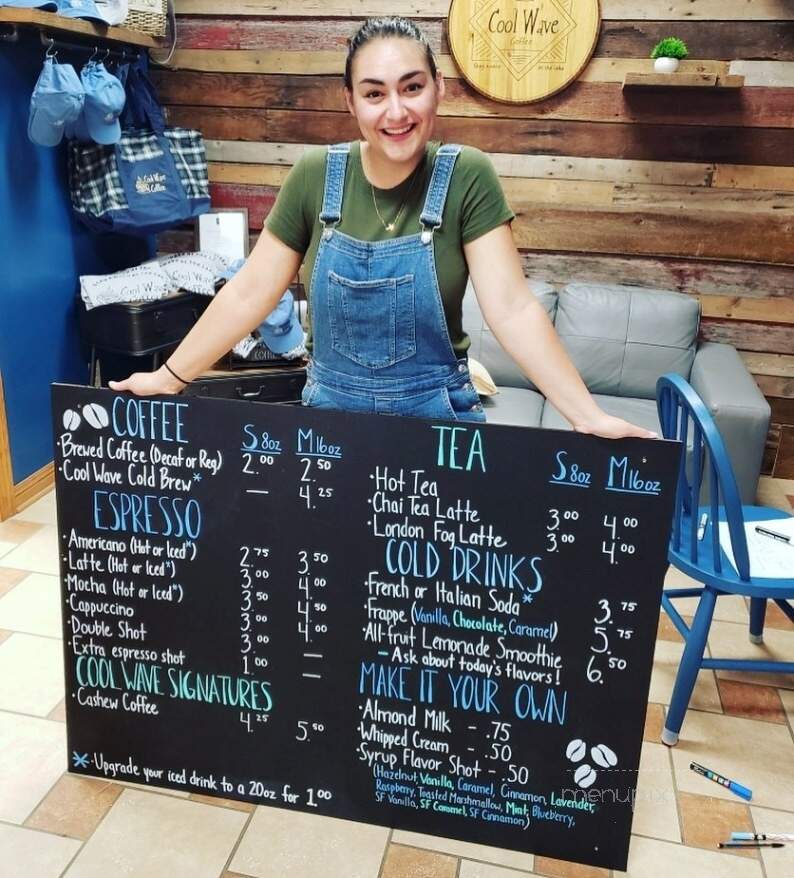 Cool Wave
Coffee
Cool Wave
Coffee
COFFEE S 8oz M 16oz
Brewed Coffee (Decaf or Reg) 2.00 2.50
Cool Wave Cold Brew* — 4.25
ESPRESSO
Americano (Hot or Iced*) 2.75 3.50
Latte (Hot or Iced*) 3.00 4.00
Mocha (Hot or Iced*) 3.50 4.50
Cappuccino 3.00 4.00
Double Shot 3.00 —
Extra espresso shot 1.00 —
COOL WAVE SIGNATURES
Cashew Coffee 4.25 5.50
*-Upgrade your iced drink to a 20oz for 1.00
TEA S 8oz M 16oz
Hot Tea
Chai Tea Latte 3.00 4.00
London Fog Latte 3.00 4.00
COLD DRINKS
French or Italian Soda* 3.75
Frappe (Vanilla, Chocolate, Caramel) 5.75
All-fruit Lemonade Smoothie 6.50
- Ask about today's flavors!
MAKE IT YOUR OWN
Almond Milk - .75
Whipped Cream - .50
Syrup Flavor Shot - .50
(Hazelnut, Vanilla, Caramel, Cinnamon, Lavender,
Raspberry, Toasted Marshmallow, Mint, Blueberry,
SF Vanilla, SF Caramel, SF Cinnamon)